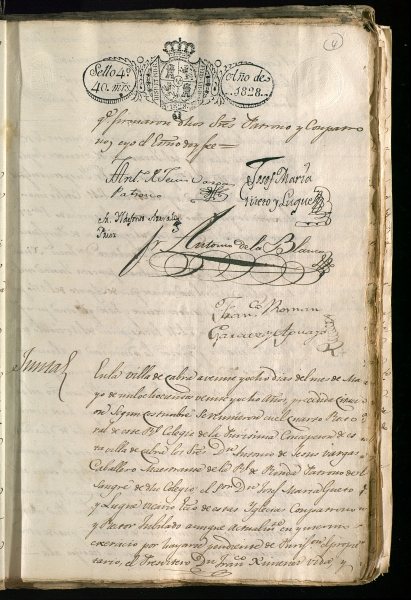 4
Sello 4º
40. mrs.
Año de
1828.
qe firmaron dhos Sres Patrono y Conpatronos
yo el Essno doy fee =
Antº de Jesus
Patrono
Josef Maria
Güeto y Luque
Prior
Antonio de la Blanca
Franco Roman
Garcés y Apuazo
Junta
En la villa de Cabra a veinte y ocho dias del mes de Ma
yo de mil ochocientos veinte y ocho años, precedida citacion
on segun costumbre se reunieron en el cuarto Rector
de este Rl Colegio de la Purisima Concepcion de es
ta villa de Cabra los Sres Dn Antonio de Jesus Vargas
Caballero Maestrante de la Rl de Ronda Patrono de
Sangre de dho Colegio, el Sor Dn Josef Maria Gueto
y Luque vicario de estas Iglesias Conpatrono
y Rector Jubilado aunque actualmte en
exercicio por hayarse pendiente de el propie
tario, el Presvitero Dn Franco Ximenez Vida, y